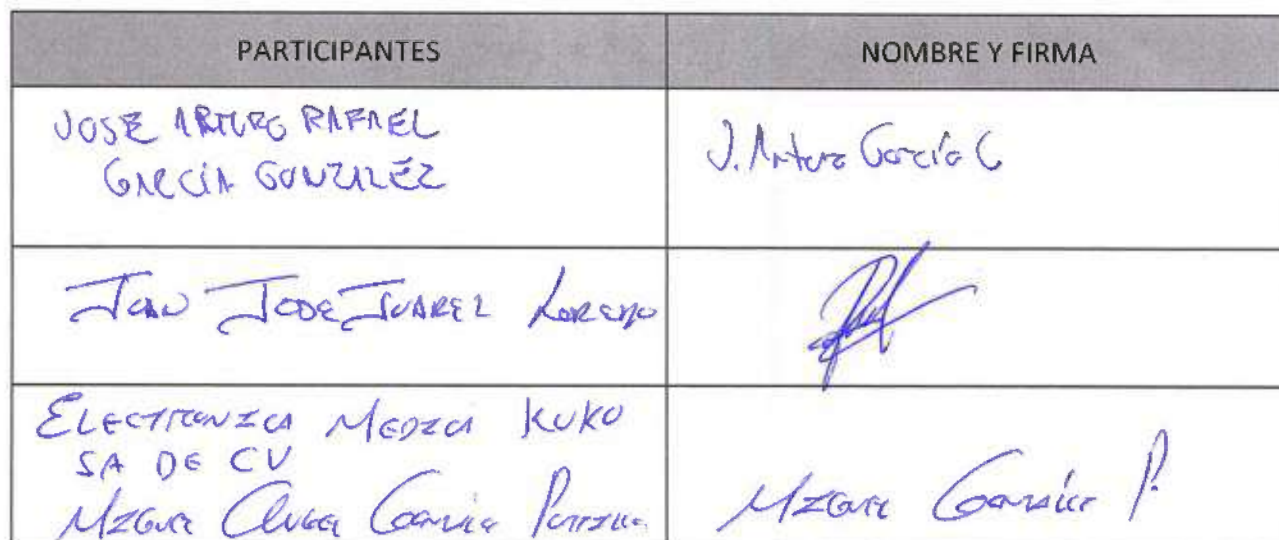 PARTICIPANTES
NOMBRE Y FIRMA
JOSE ARTURO RAFAEL
GARCÍA GONZALÉZ
J. Arturo García G
JUAN JOSE JUAREZ LORENZO
ELECTRONICA MEDICA KUKO
SA DE CV
MIGUEL ANGEL
MIGUEL P.